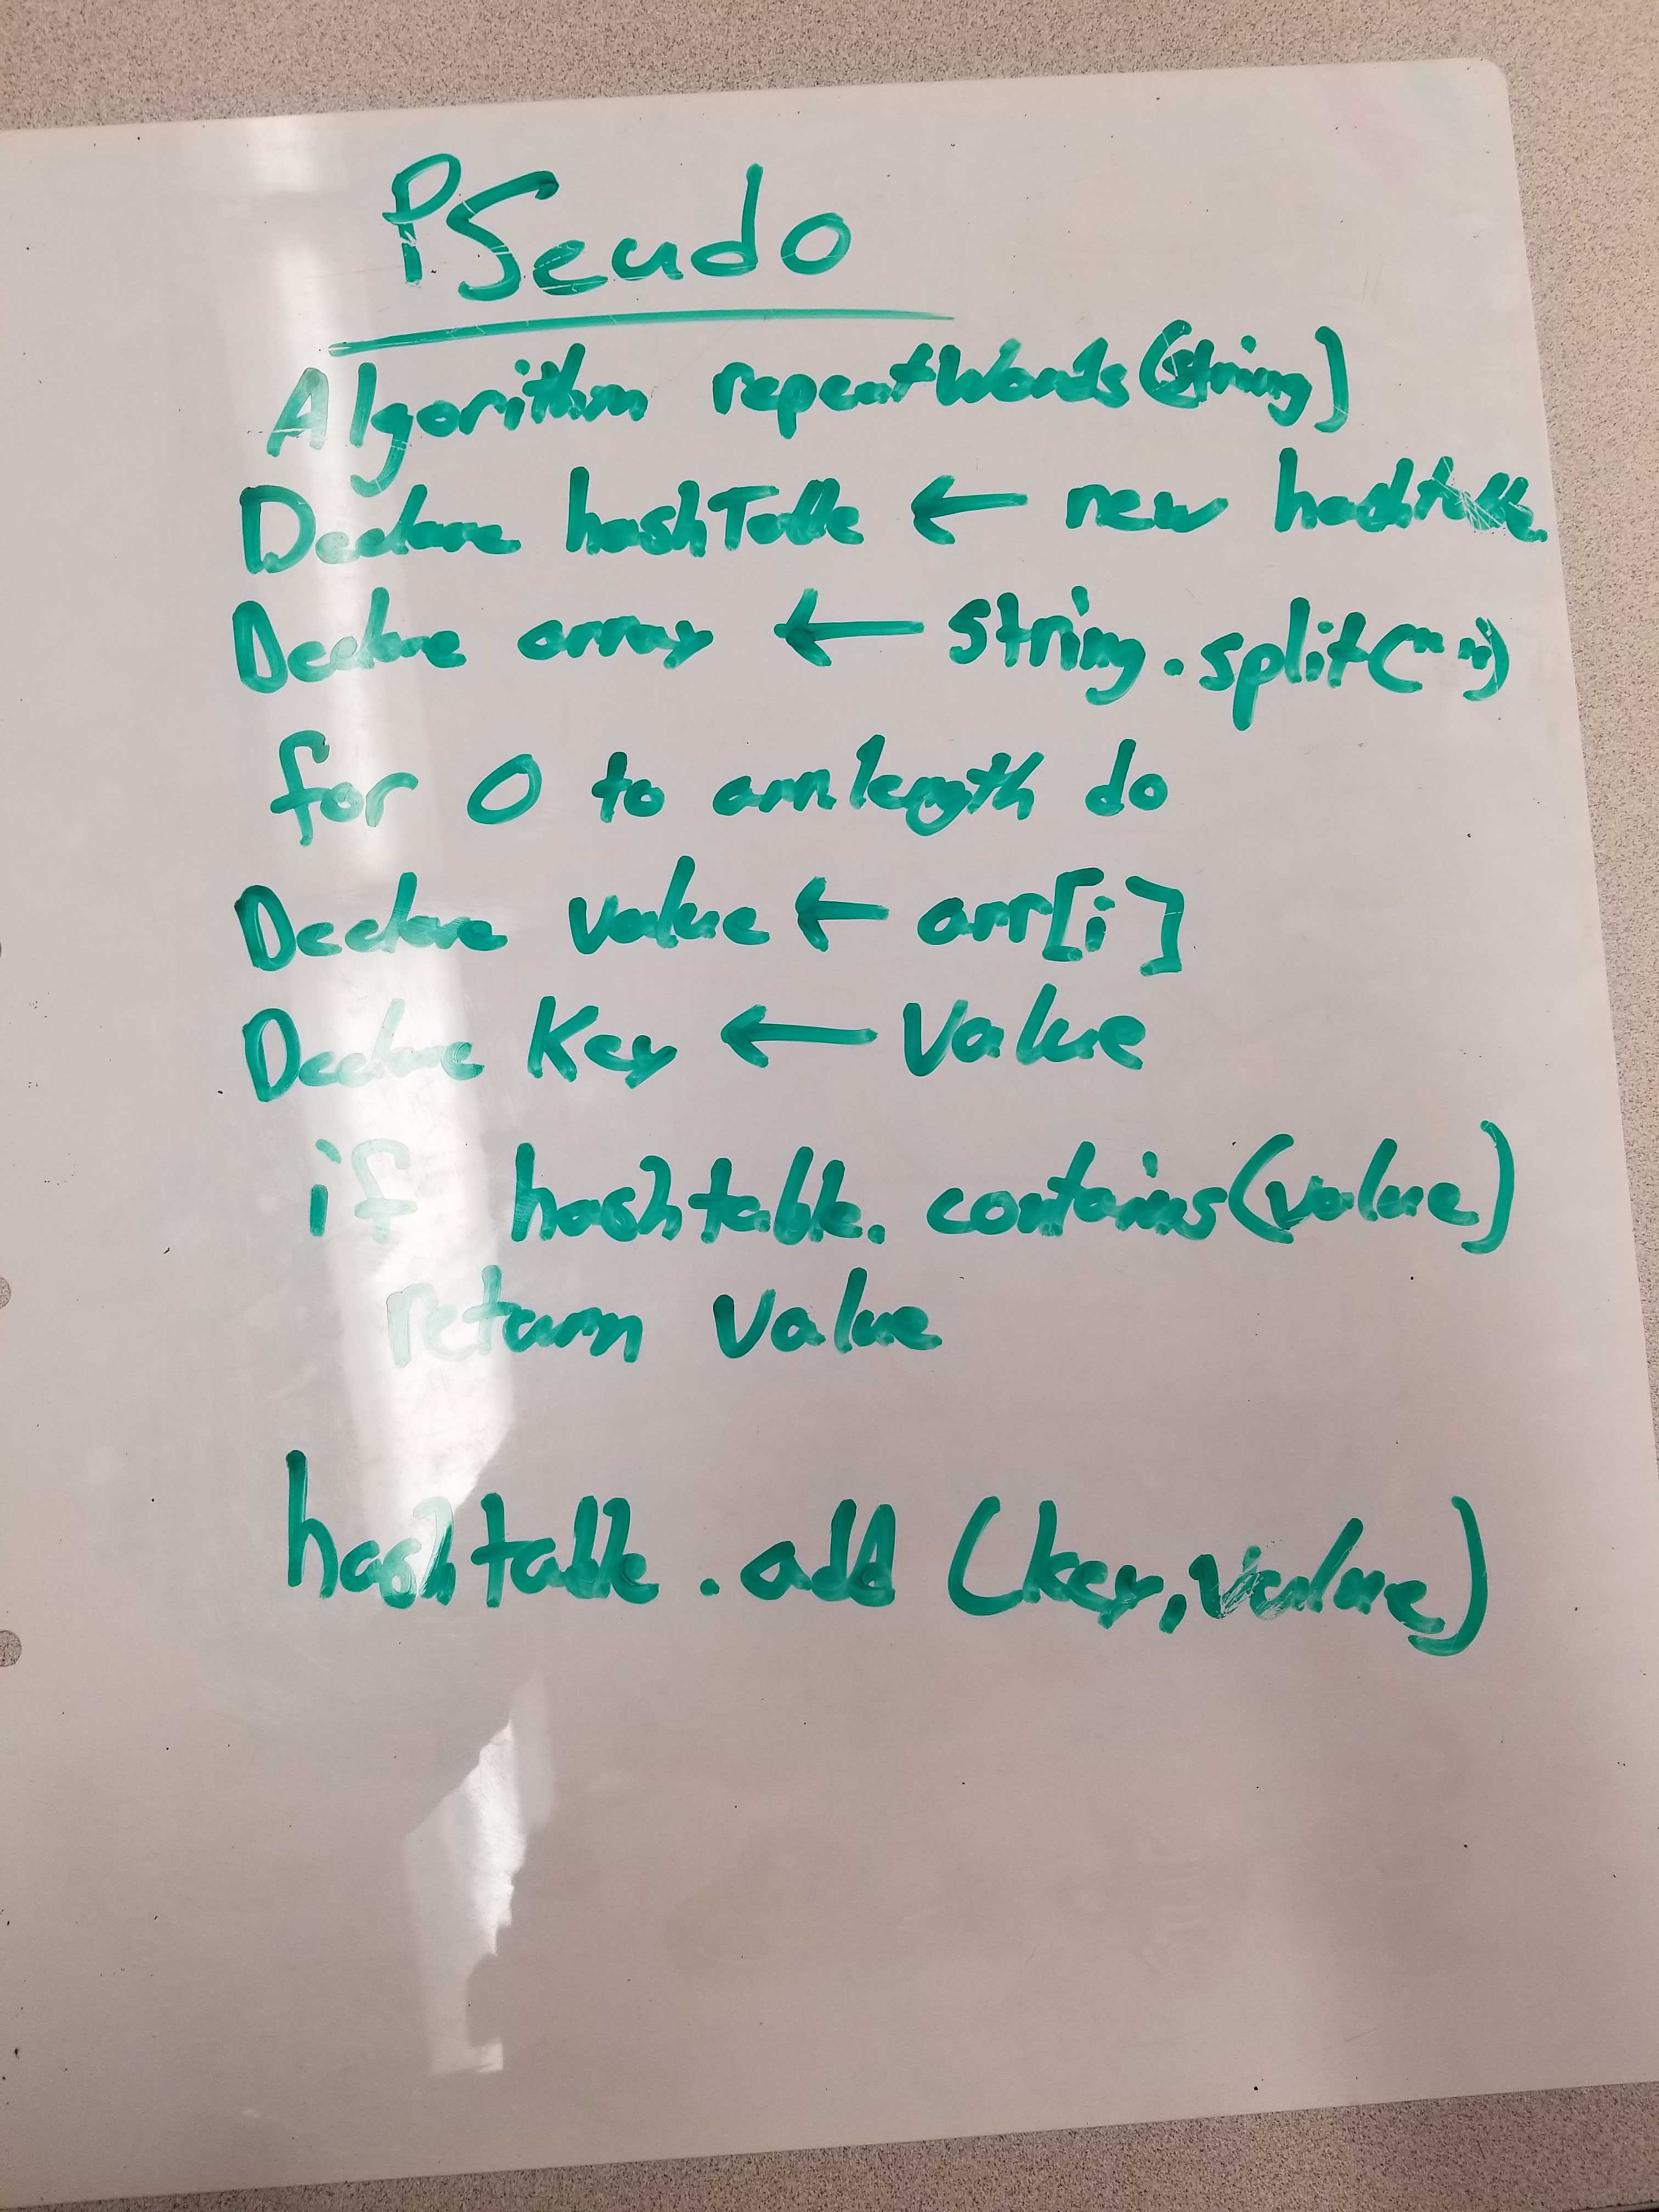 PSeudo
Algorithm repeatWords(string)
Declare hashTable ← new hashtable
Declare array ← string.split(" ")
for 0 to arr.length do
Declare value ← arr[i]
Declare Key ← Value
if hashtable.contains(value)
return value
hashtable.add(key,value)